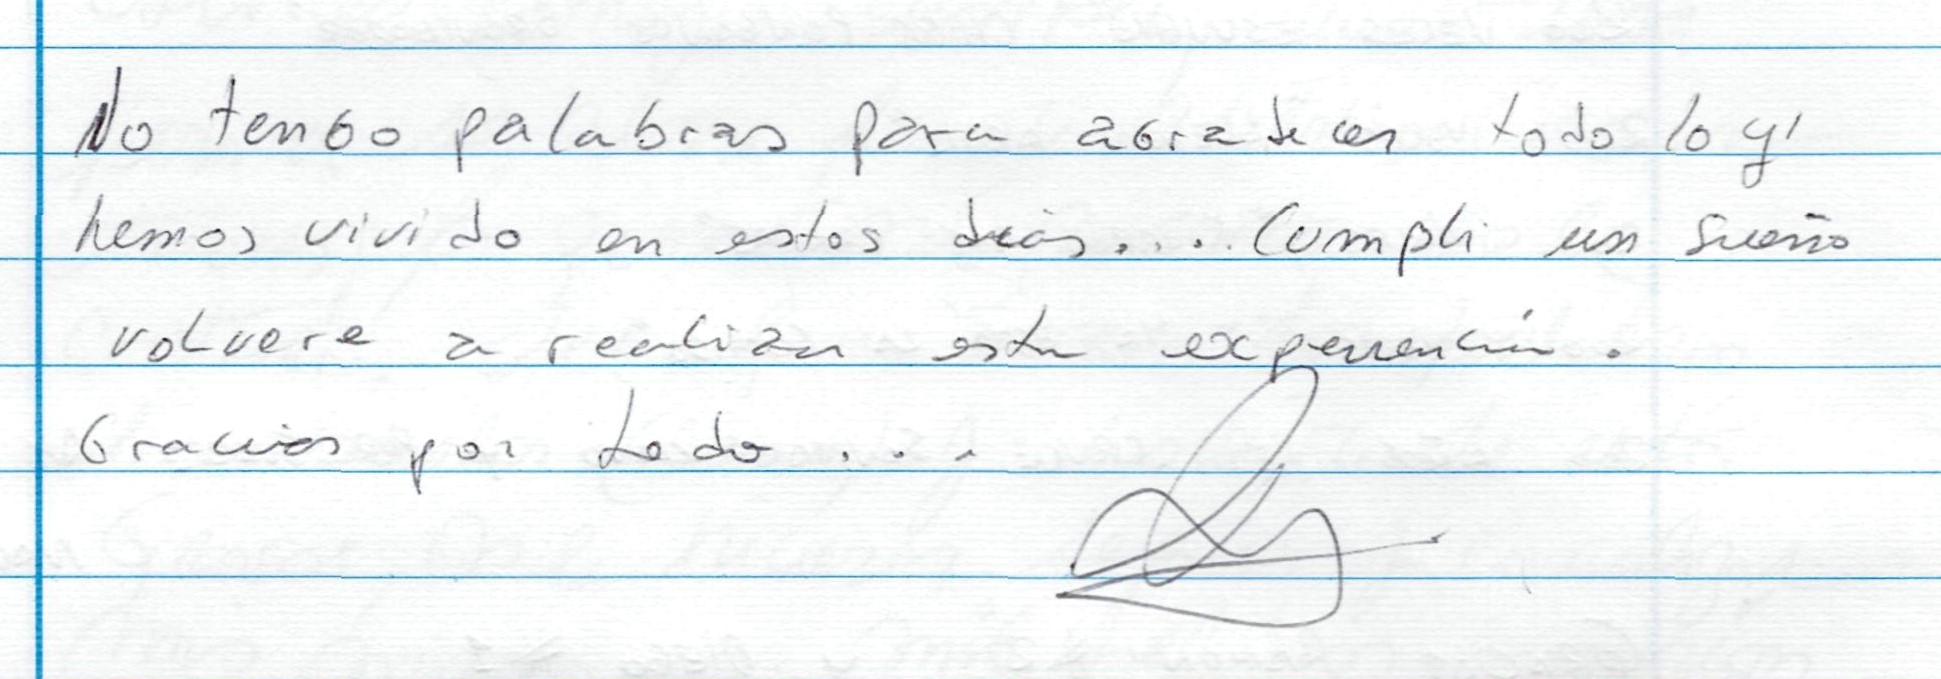 No tengo palabras para agradecer todo lo q'
hemos vivido en estos dias.... Cumpli un sueño
volvere a realizar esta experiencia.
Gracias por todo...